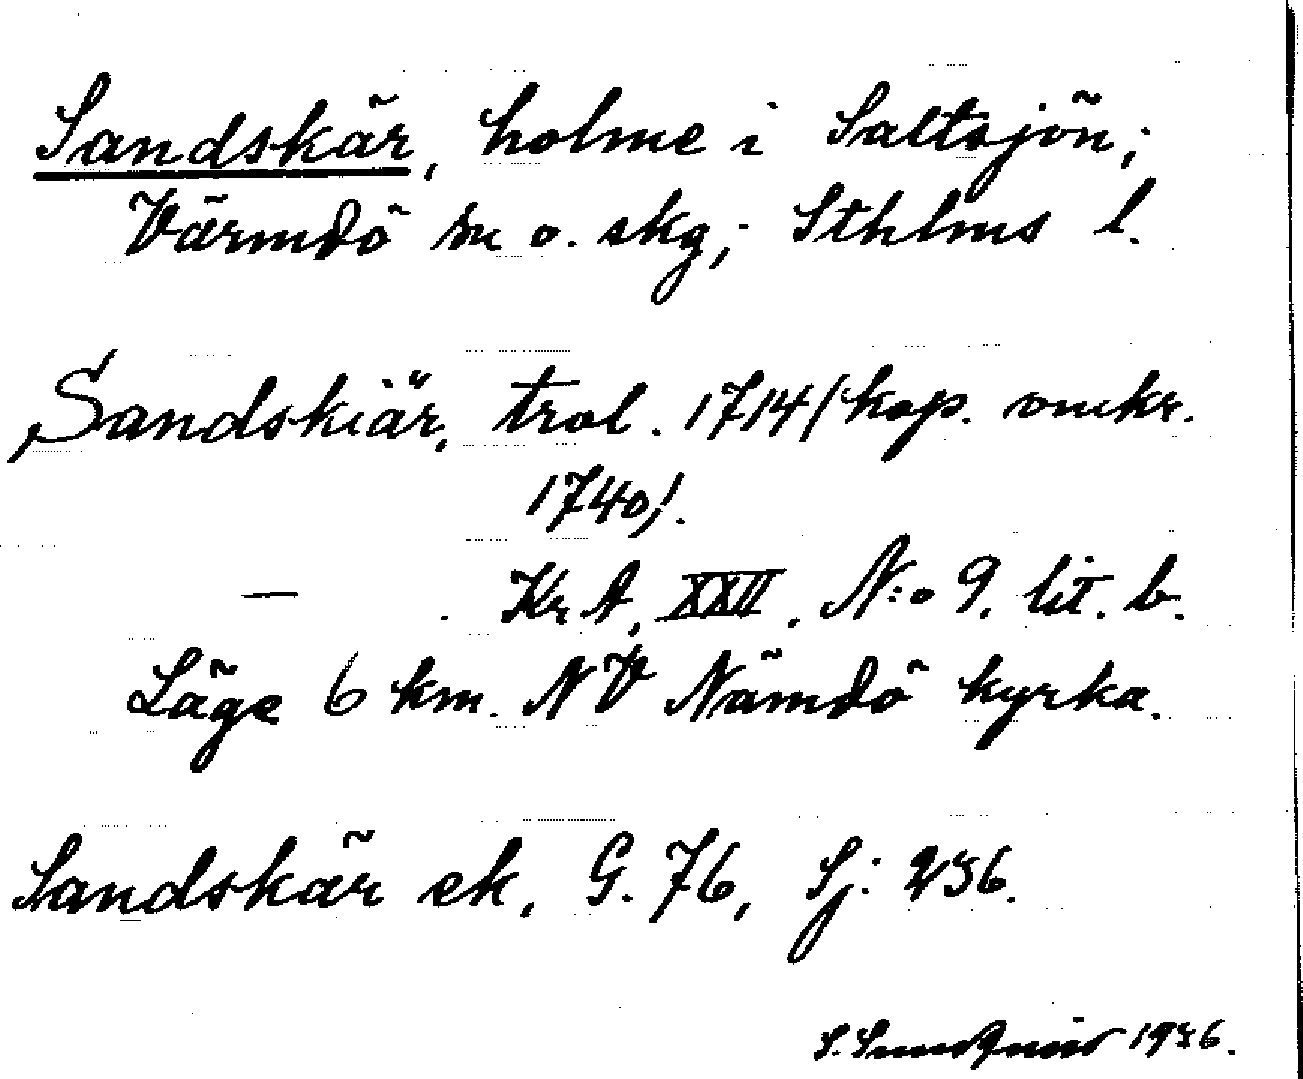 Sandskär, holme i Saltsjön;
Värmdö sn o. skg; Sthlms l.
Sandskiär, trol. 1714/kop. omkr.
1740/.
— Kr.A. XXII. N:o 9. lit. b.
Läge 6 km. NV Nämdö kyrka.
Sandskär ek. G. 76, Sj: 236.
S. Sundqvist 1936.